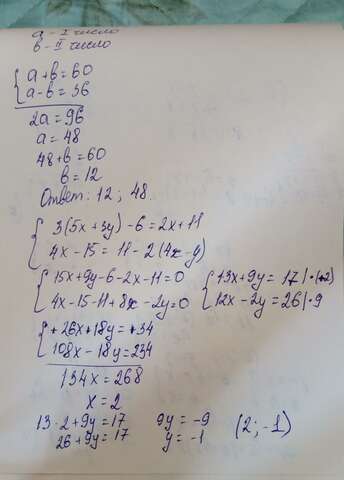 a - I число
в - II число
a+в=60
a-в=36
2a=96
a=48
48+в=60
в=12
Ответ: 12; 48.
3(5x+3y)-6=2x+11
4x-15=11-2(4x-y)
15x+9y-6-2x-11=0
4x-15-11+8x-2y=0
13x+9y=17 |·(+2)
12x-2y=26 |·9
+26x+18y=+34
108x-18y=234
134x=268
x=2
13·2+9y=17
26+9y=17
9y=-9
y=-1
(2;-1)